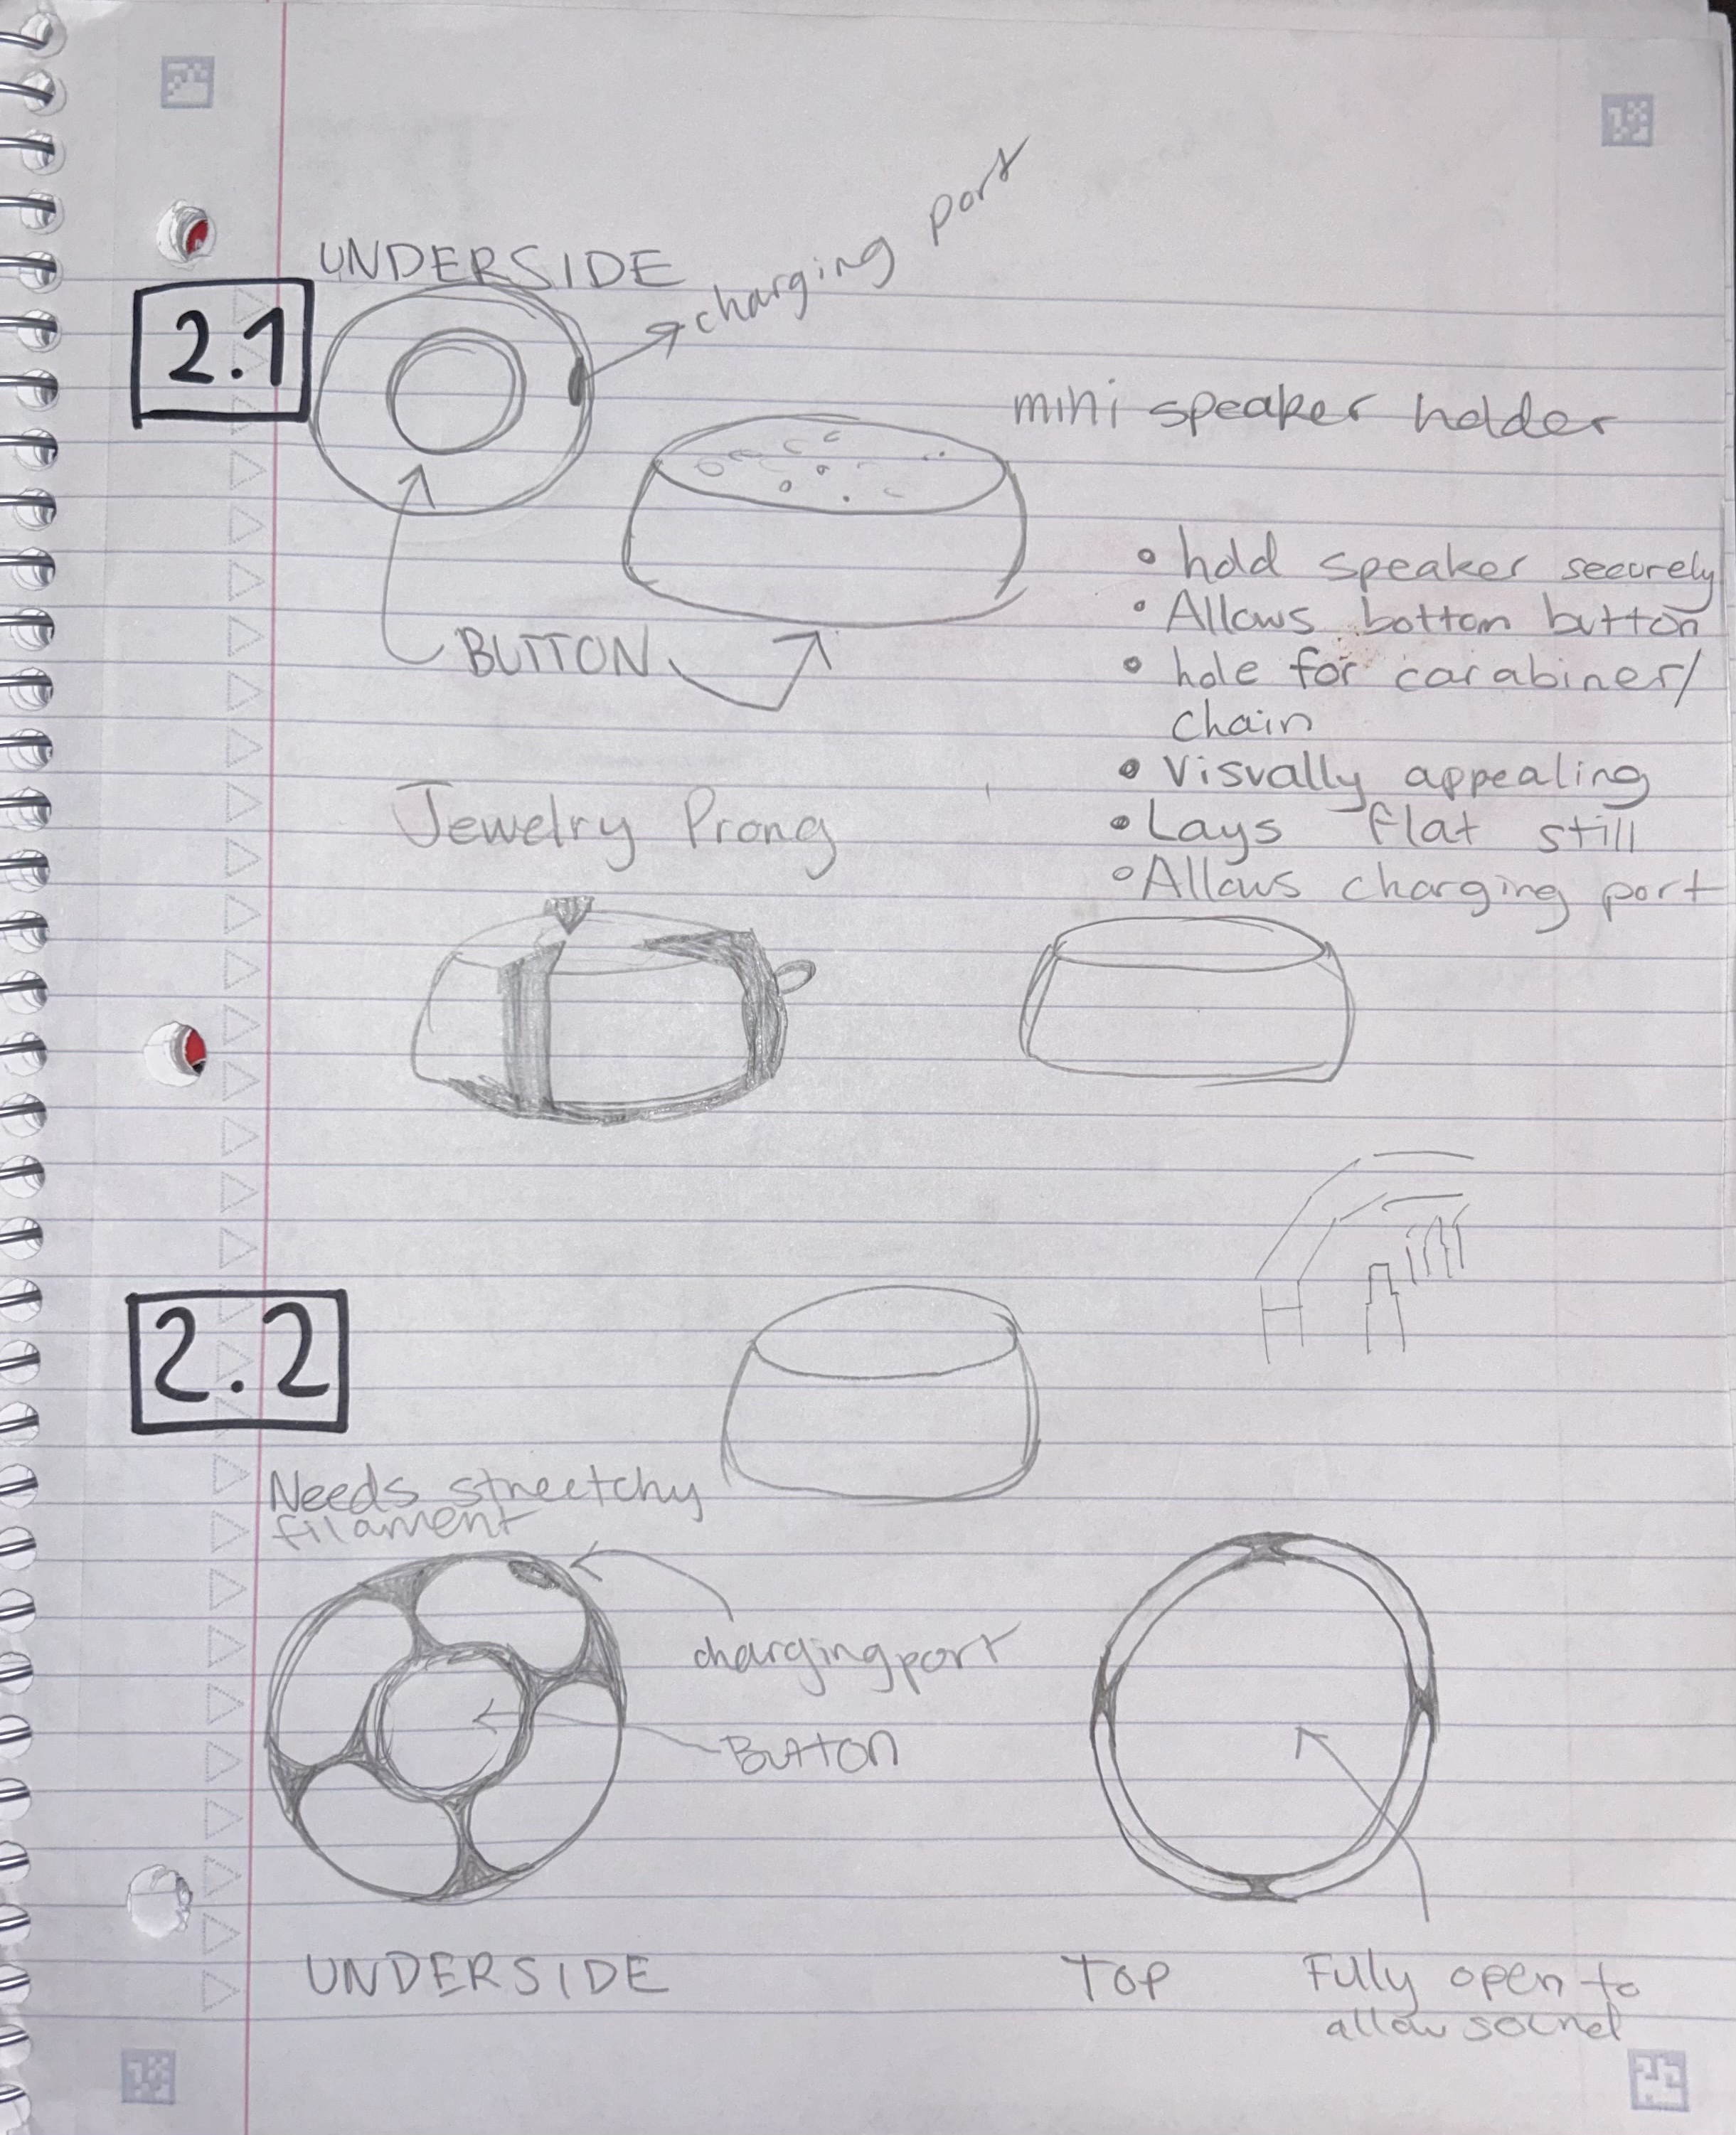 UNDERSIDE
charging port
2.1
mini speaker holder
• hold speaker securely
• Allows bottom button
BUTTON
• hole for carabiner/
chain
• Visually appealing
Jewelry Prong
• Lays flat still
• Allows charging port
2.2
Needs streetchy
filament
chargingport
Button
UNDERSIDE
TOP
Fully open to
allow sound